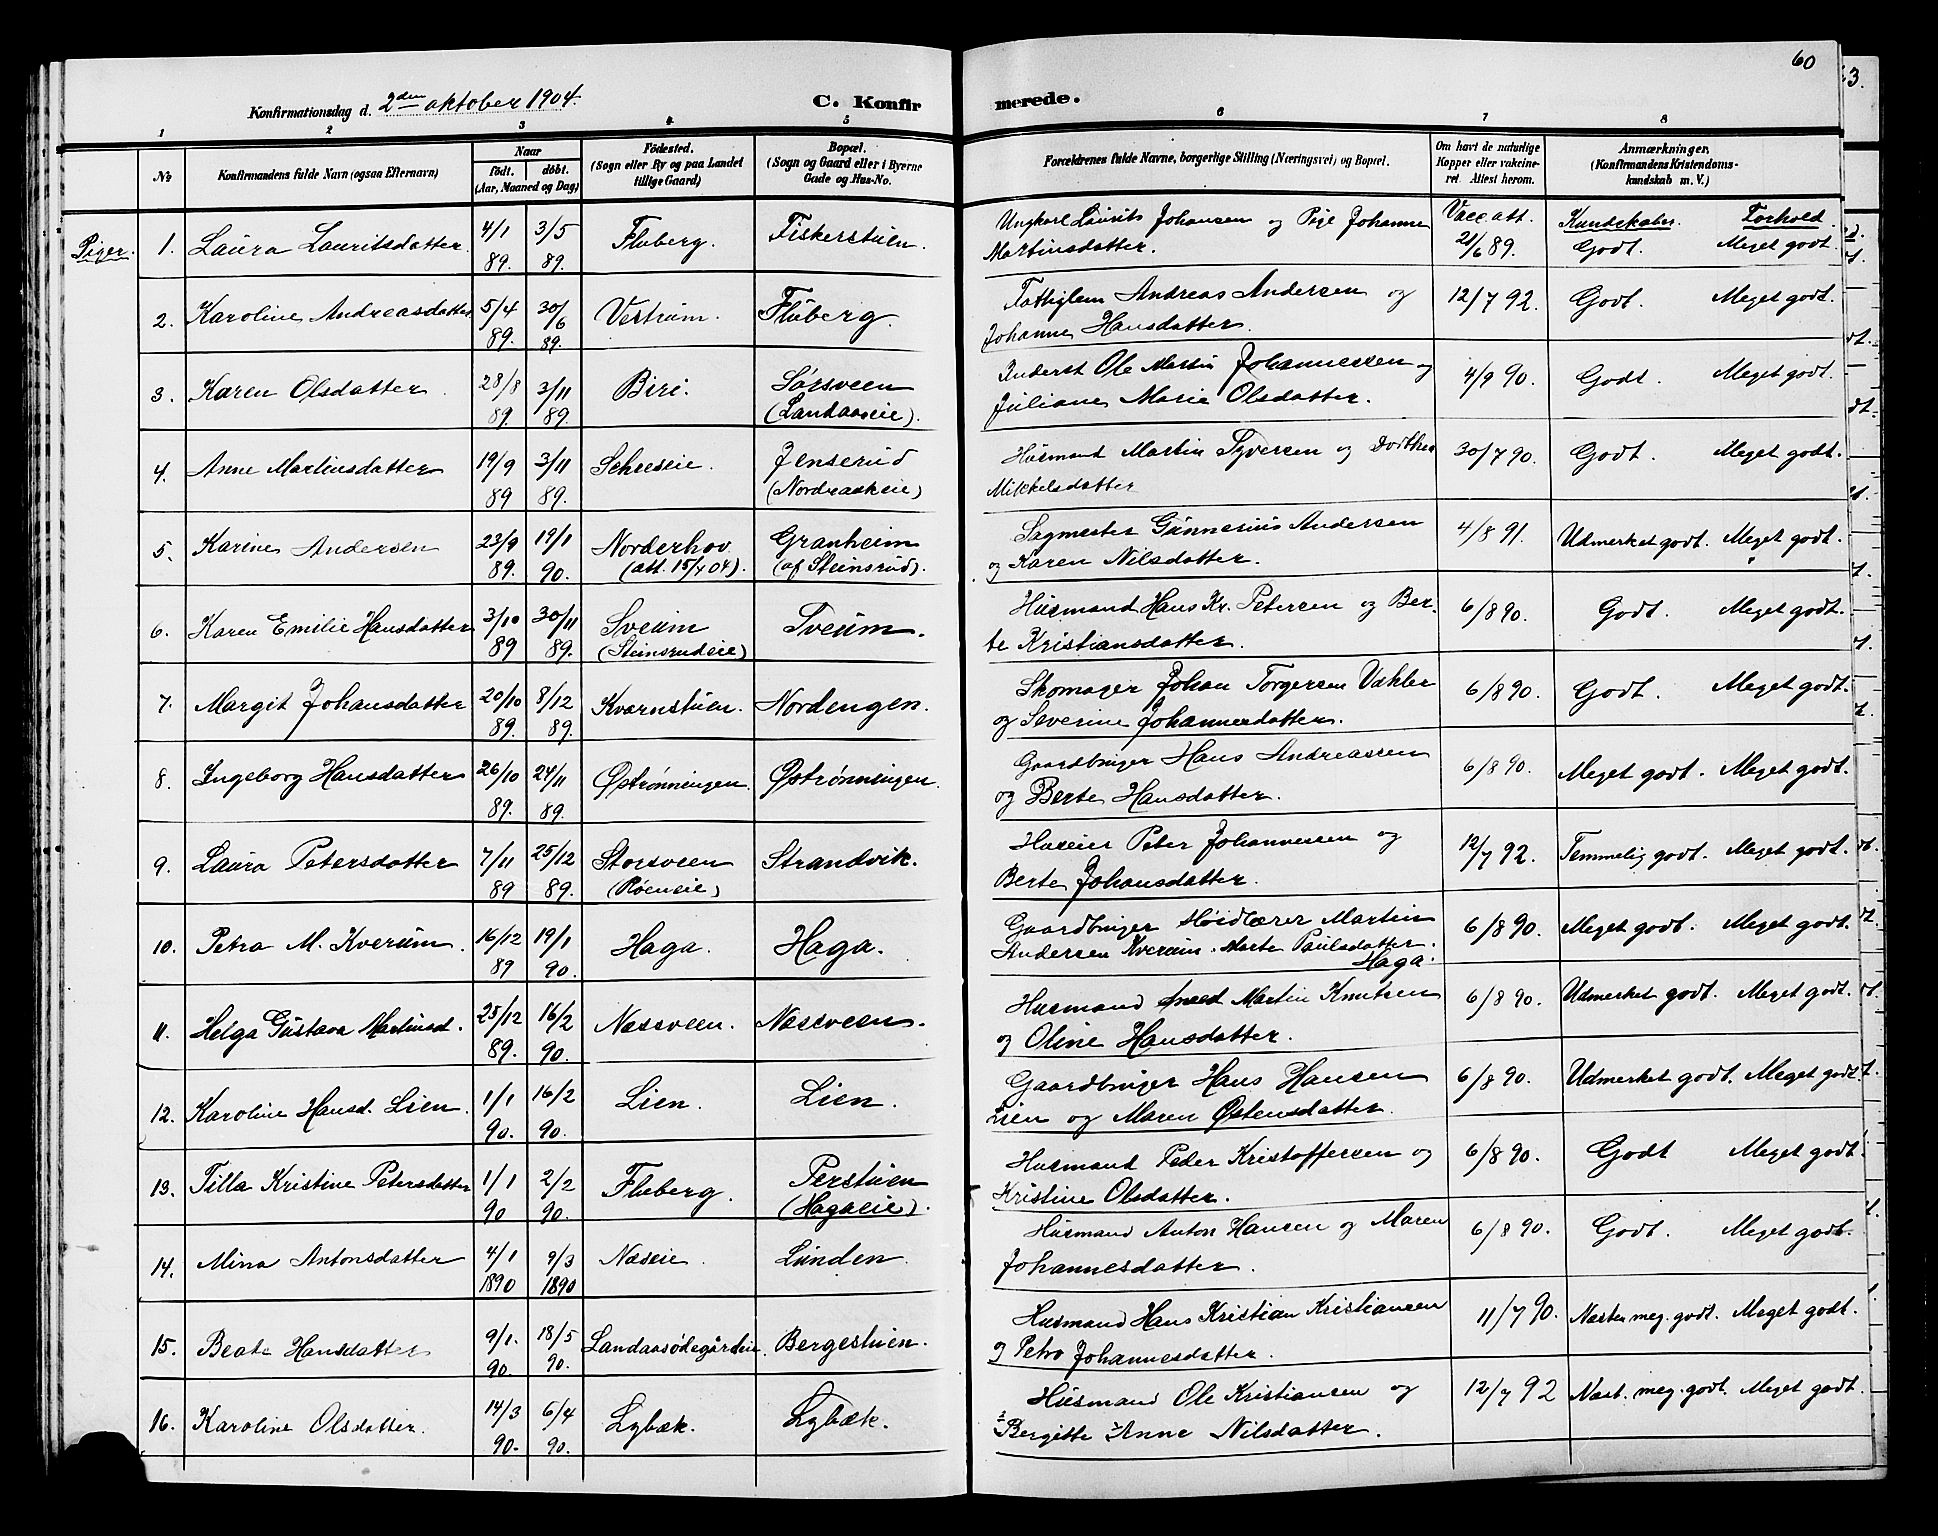 60
Konfirmationsdag d. 2den oktober 1904.
C. Konfirmerede.
1 2 3 4 5 6 7 8
№
Konfirmandens fulde Navn (ogsaa Efternavn)
Naar
født. døbt.
(Aar, Maaned og Dag)
Fødested.
(Sogn eller By og paa Landet
tillige Gaard)
Bopæl.
(Sogn og Gaard eller i Byerne
Gade og Hus-No.
Forældrenes fulde Navne, borgerlige Stilling (Næringsvei) og Bopæl.
Om havt de naturlige
Kopper eller vakcine-
ret Attest herom.
Anmærkninger.
(Konfirmandens Kristendoms-
kundskab m. V.)
Piger. 1. Laura Lauritsdatter 4/1 89. 3/5 89. Fluberg. Fiskerstuen. Ungkarl Laurits Johansen og Pige Johanne Vacc att. Kundskaber. Forhold.
Martinsdatter. 21/6 89. Godt. Meget godt.
2. Karoline Andreasdatter 5/4 89. 30/6 89. Vestrum. Fluberg. Fattiglem Andreas Andersen og 12/7 92. Godt. Meget godt.
Johanne Hansdatter.
3. Karen Olsdatter 28/8 89. 3/11 89. Biri. Sørsveen Inderst Ole Martin Johannessen og 4/9 90. Godt. Meget godt.
(Landaaseie). Juliane Marie Olsdatter.
4. Anne Martinsdatter 19/9 89 3/11 89. Schesseie. Jenserud Husmand Martin Syversen og Dorthea 30/7 90. Godt. Meget godt.
(Nordraakeie) Mikkelsdatter
5. Karine Andersen 23/9 89. 19/1 90. Norderhov Granheim Sagmester Gunnerius Andersen 4/8 91. Udmerket godt. Meget godt.
(att. 15/4 04). (af Steinsrud). og Karen Nilsdatter.
6. Karen Emilie Hansdatter 3/10 89 30/11 89. Sveum Tveum. Husmand Hans Kr. Petersen og Ber- 6/8 90. Godt. Meget godt.
(Steinsrudeie) te Kristiansdatter.
7. Margit Johansdatter 20/10 89. 8/12 89. Kvarnstuen. Nordengen. Skomager Johan Torgersen Vahler 6/8 90. Godt. Meget godt.
og Severine Johannesdatter.
8. Ingeborg Hansdatter 26/10 89. 24/11 89. Østrønningen. Østrønningen. Gaardbruger Hans Andreassen 6/8 90. Meget godt. Meget godt.
og Berte Hansdatter.
9. Laura Petersdatter 7/11 89 25/12 89. Storsveen Strandvik. Huseier Peter Johannessen og 12/7 92. Temmelig godt. Meget godt.
(Røeneie) Berte Johansdatter.
10. Petra M. Kverum. 16/12 89 19/1 90. Haga. Haga. Gaardbruger Høidlærer Martin 6/8 90. Meget godt. Meget godt.
Andersen Kverum. Marte Paulsdatter.
Haga.
11. Helga Gustava Martinsd. 25/12 89. 16/2 90. Næsveen. Næsveen. Husmand Smed Martin Knutsen 6/8 90. Udmerket godt. Meget godt.
og Oline Hansdatter.
12. Karoline Hansd. Lien. 1/1 90. 16/2 90. Lien. Lien. Gaardbruger Hans Hansen 6/8 90. Udmerket godt. Meget godt.
Lien og Maren Østensdatter.
13. Tilla Kristine Petersdatter 1/1 90 2/2 90. Fluberg. Perstuen Husmand Peder Kristoffersen og 6/8 90. Godt Meget godt.
(Hagaeie). Kristine Olsdatter.
14. Mina Antonsdatter 4/1 1890 9/3 1890 Næseie. Lunden. Husmand Anton Hansen og Maren 6/8 90. Godt. Meget godt.
Johannesdatter.
15. Beate Hansdatter 9/1. 90. 18/5 90. Landaasødegårdeie. Bergestuen. Husmand Hans Kristian Kristiansen 11/7 90. Næsten meg. godt. Meget godt.
og Petra Johannesdatter.
16. Karoline Olsdatter. 14/3 90. 6/4 90. Lybæk. Lybæk. Husmand Ole Kristiansen og 12/7 92 Næst. meg. godt. Meget godt.
Bergitte Anne Nilsdatter.